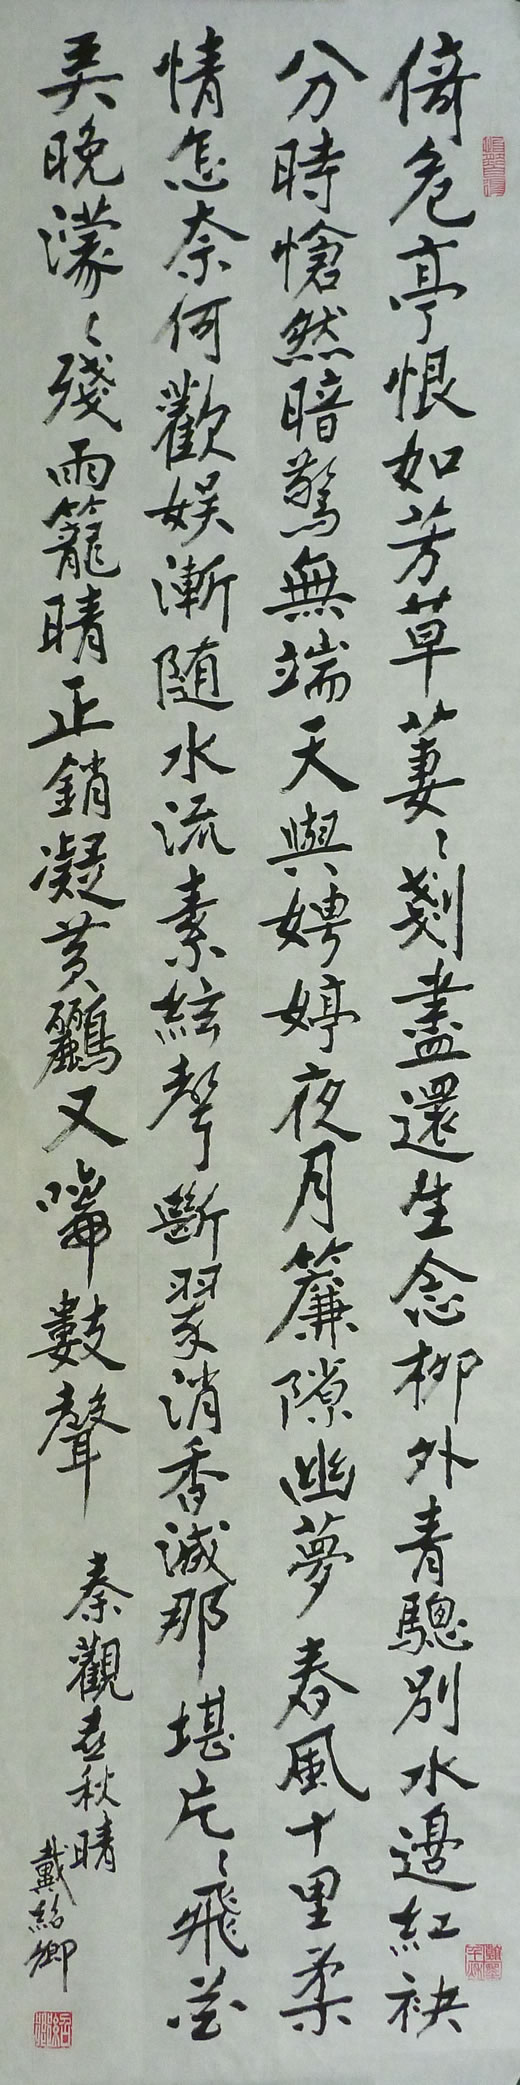 倚危亭恨如芳草萋〻剗盡還生念柳外青驄別水邊紅袂
分時愴然暗驚無端天與娉婷夜月簾隙幽夢春風十里柔
情怎奈何歡娛漸随水流素絃聲斷翠消香減那堪片〻飛花
弄晚濛〻殘雨籠晴正銷凝黄鸝又啼數聲
秦觀 秋晴
戴紹卿